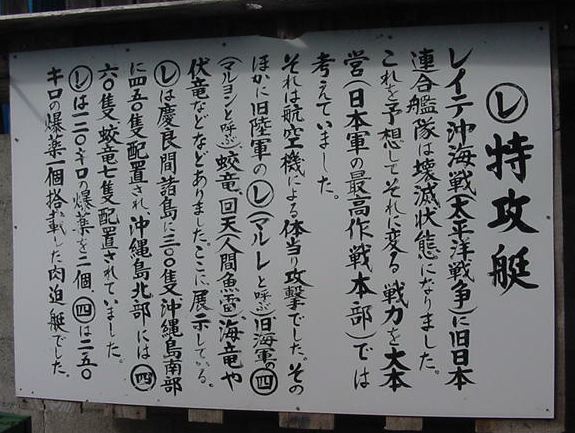 ㋹特攻艇
レイテ沖海戦(太平洋戦争)に旧日本
連合艦隊は壊滅状態になりました。
これを予想してそれに変る戦力を大本
営(日本軍の最高作戦本部)では
考えていました。
それは航空機による体当り攻撃でした。その
ほかに旧陸軍の㋹(マルレと呼ぶ)旧海軍の㊃
(マルヨンと呼ぶ)蛟竜、回天(人間魚雷)海竜や
伏竜などなどありました。ここに展示している。
㋹は慶良間諸島に三〇〇隻沖縄島南部
に四五〇隻配置され、沖縄島北部には㊃
六〇隻、蛟竜七隻配置されていました。
㋹は一二〇キロの爆薬を二個㊃は二五〇
キロの爆薬一個搭載した肉迫艇でした。